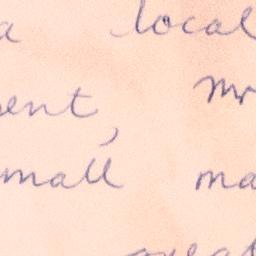 a local
ent, Mr
mall ma